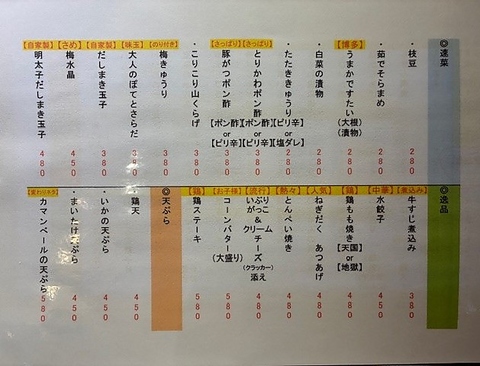 ◎速菜
・枝豆 280
・茹でそらまめ 280
【博多】うまかですたい(大根)(漬物) 280
・白菜の漬物 280
・たたききゅうり【ピリ辛】or【塩ダレ】 280
【さっぱり】とりかわポン酢【ポン酢】or【ピリ辛】 380
【さっぱり】豚がつポン酢【ポン酢】or【ピリ辛】 380
・こりこり山くらげ 380
【のり付き】梅きゅうり 380
【味玉】大人のぽてとさらだ 380
【自家製】だしまき玉子 380
【さめ】梅水晶 480
【自家製】明太子だしまき玉子 480
◎逸品
【煮込み】牛すじ煮込み 380
【中華】水餃子 450
【鶏】鶏もも焼き【天国】or【地獄】 480
【人気】ねぎだく あつあげ 480
【熱々】とんぺい焼き 480
【流行】いぶりがっこ&クリームチーズ(クラッカー)添え 480
【お子様】コーンバター(大盛り) 580
【鶏】鶏ステーキ 580
◎天ぷら
・鶏天 450
・いかの天ぷら 480
・まいたけ天ぷら 450
【変わりネタ】カマンベールの天ぷら 580